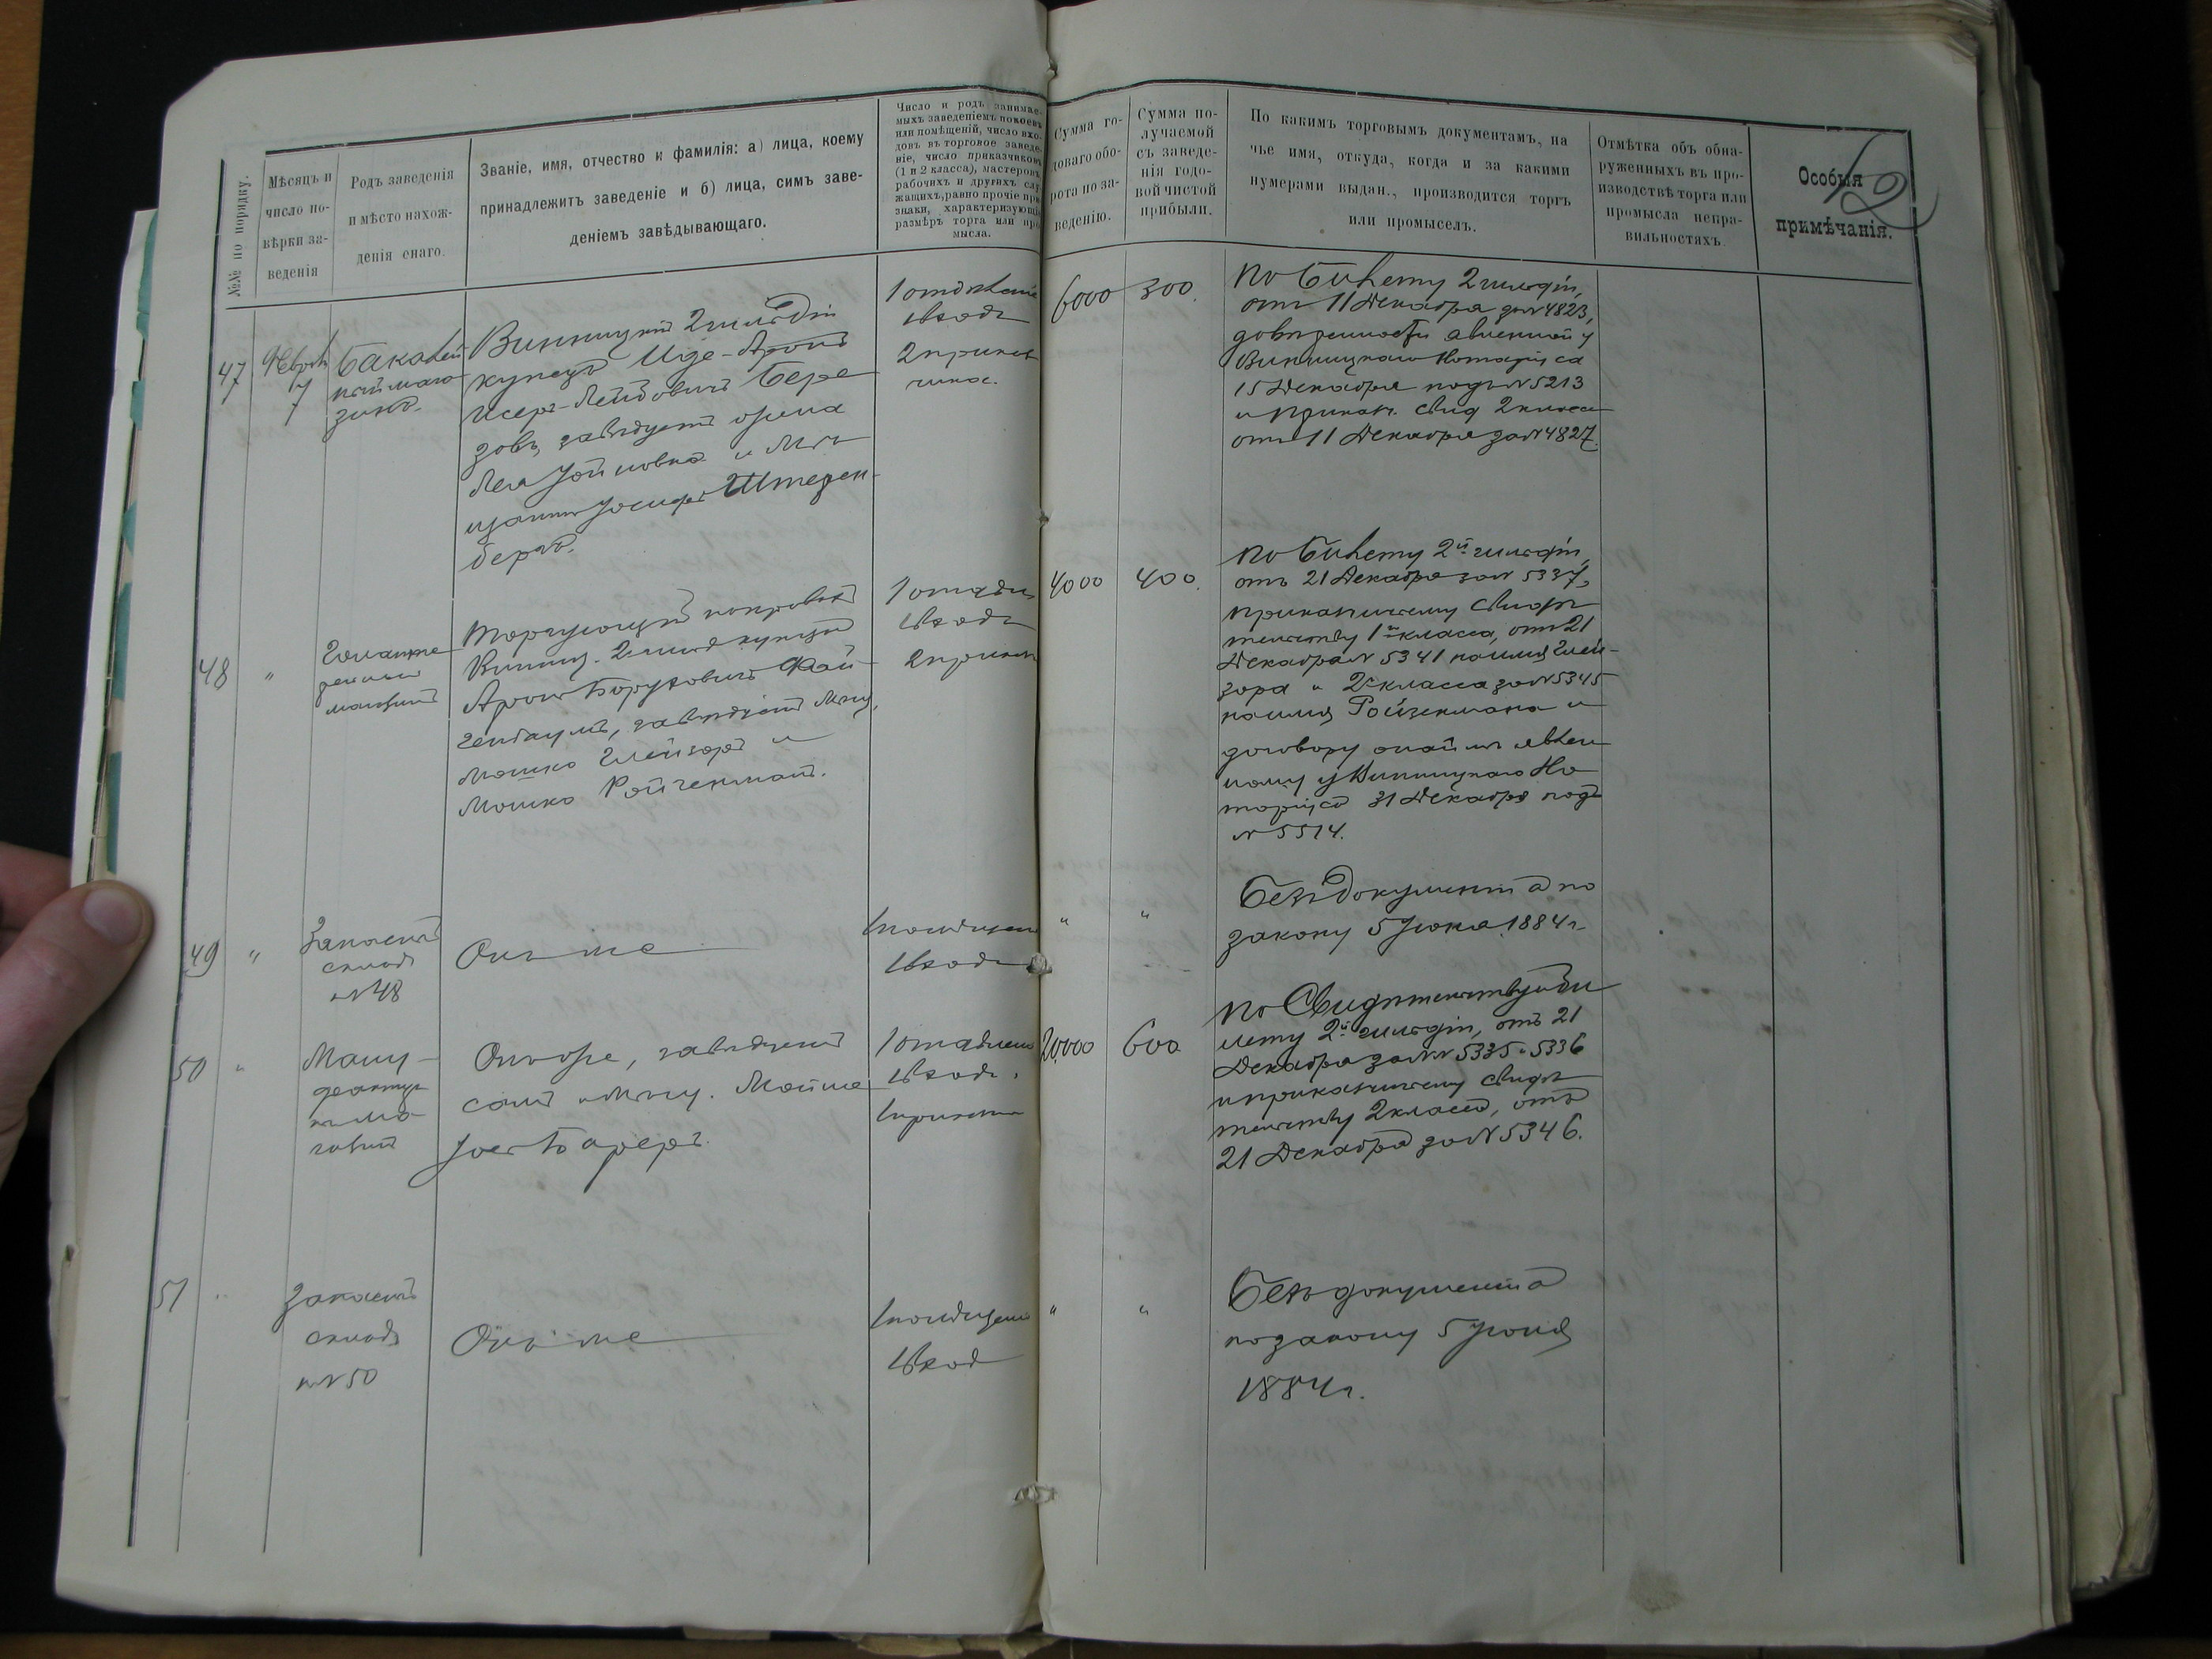 №№ по порядку.
Мѣсяцъ и
число по-
вѣрки за-
веденія
Родъ заведенія
и мѣсто нахож-
денія онаго.
Званіе, имя, отчество и фамилія: а) лица, коему
принадлежитъ заведеніе и б) лица, симъ заве-
деніемъ завѣдывающаго.
Число и родъ занимае-
мыхъ заведеніемъ покоевъ
или помѣщеній, число вхо-
довъ въ торговое заведе-
ніе, число приказчиковъ
(1 и 2 класса), мастеровъ
рабочихъ и другихъ слу-
жащихъ, равно прочіе при-
знаки, характеризующіе
размѣръ торга или про-
мысла.
Сумма го-
доваго обо-
рота по за-
веденію.
Сумма по-
лучаемой
съ заведе-
нія годо-
вой чистой
прибыли.
По какимъ торговымъ документамъ, на
чье имя, откуда, когда и за какими
нумерами выдан., производится торгъ
или промыселъ.
Отмѣтка объ обна-
руженныхъ въ про-
изводствѣ торга или
промысла непра-
вильностяхъ.
Особыя
примѣчанія.
47
7
Бакалей
ный мага
зинъ.
Винницкій 2 гильдіи
купецъ Иде-Аронъ
Исеръ-Лейбовичъ Бере
зовъ, завѣдуетъ
и Мѣ
щанинъ Іосифъ Штерен-
бергъ.
1 отдѣленіе
1 входъ
2 приказ
чика.
6000
300.
По билету 2 гильдіи,
отъ 11 Декабря за № 4823,
довѣренности явленной у
Винницкаго Нотаріуса
15 Декабря подъ № 5213
и приказ. свид 2 класса
отъ 11 Декабря за № 4827.
48
"
Галанте
рейный
магазинъ
Торгующій
Винниц. 2 гильд купецъ
Аронъ Боруховичъ Фай
генбаумъ, завѣдуетъ Мѣщ,
Мошко Глейзеръ и
Мошко Ройзенманъ.
1 отдѣлен
1 входъ
2 приказч
4000
400.
По билету 2й гильдіи,
отъ 21 Декабря за № 5337,
приказчичьему свидѣ
тельству 1го класса, отъ 21
Декабря № 5341 на имя Глей-
зера и 2 класса за № 5345
на имя Ройзенмана и
договору о наймѣ явлен
ному у Винницкаго Но
таріуса 31 Декабря подъ
№ 5514.
49
"
Запасный
складъ
№ 48
Онъ же
1 помѣщен
1 входъ
"
"
Безъ документа по
закону 5 Іюня 1884 г.
50
"
Ману-
фактур
н. ма-
газинъ
Онъ же, завѣдуетъ
самъ и Мѣщ. Мойше
Іось Бареръ.
1 отдѣлен
1 входъ.
1 приказч
20000
600
По свидѣтельству и би
лету 2й гильдіи, отъ 21
Декабря за №№ 5335 и 5336
и приказчичьему свидѣ
тельству 2 класса, отъ
21 Декабря за № 5346.
51
"
Запасный
складъ
к № 50
Онъ же
1 помѣщен
1 входъ
"
"
Безъ документа
по закону 5 Іюня
1884 г.